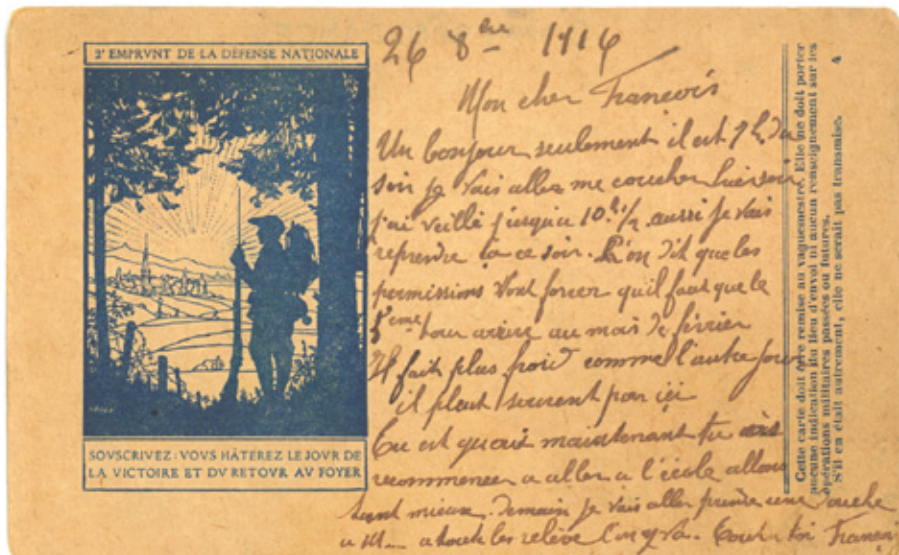 2ᵉ EMPRVNT DE LA DÉFENSE NATIONALE
SOVSCRIVEZ : VOVS HÂTEREZ LE JOVR DE
LA VICTOIRE ET DV RETOVR AV FOYER
26 8bre 1916
Mon cher Francois
Un bonjour seulement il est 7h du
soir je vais aller me coucher hier soir
j'ai veillé jusqu'a 10h 1/2 aussi je vais
reprendre ça ce soir. L'on dit que les
permissions vont forcer qu'il faut que le
tour arrive au mois de février
Il fait plus froid comme l'autre jour
il pleut souvent par ici
maintenant tu as
recommencer a aller a l'école allons
tant mieux. Demain je vais aller prendre une douche
a toi Francois
Cette carte doit être remise au vaguemestre. Elle ne doit porter
aucune indication du lieu d'envoi ni aucun renseignement sur les
opérations militaires passées ou futures.
S'il en était autrement, elle ne serait pas transmise.
4